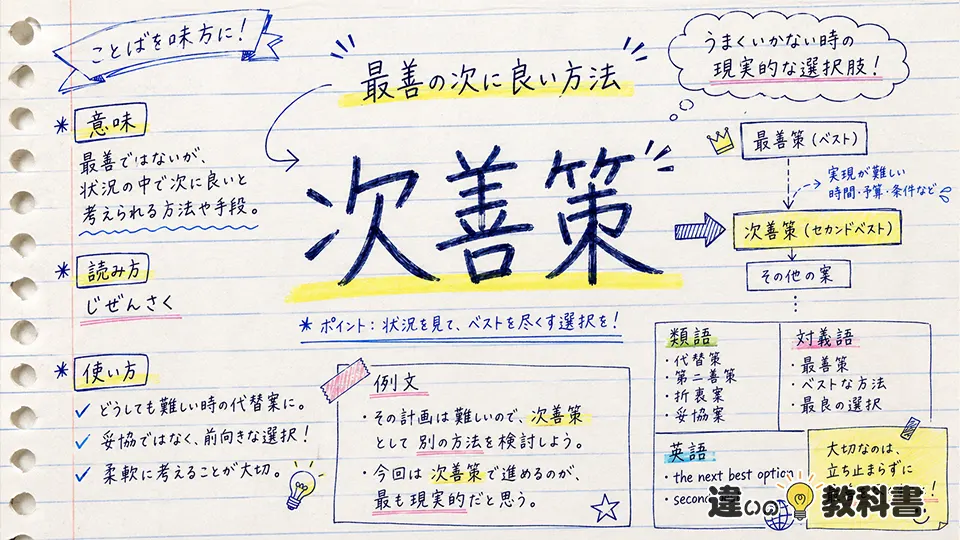 ことばを味方に!
最善の次に良い方法
うまくいかない時の
現実的な選択肢!
意味
最善ではないが、
状況の中で次に良いと
考えられる方法や手段。
読み方
じぜんさく
使い方
どうしても難しい時の代替案に。
妥協ではなく、前向きな選択!
柔軟に考えることが大切。
次善策
* ポイント:状況を見て、ベストを尽くす選択を!
例文
・その計画は難しいので、次善策
として別の方法を検討しよう。
・今回は次善策で進めるのが、
最も現実的だと思う。
最善策(ベスト)
実現が難しい
時間・予算・条件など
次善策(セカンドベスト)
その他の案
類語
・代替策
・第二善策
・折衷案
・妥協案
対義語
・最善策
・ベストな方法
・最良の選択
英語
・the next best option
大切なのは、
立ち止まらずに
違いの教科書